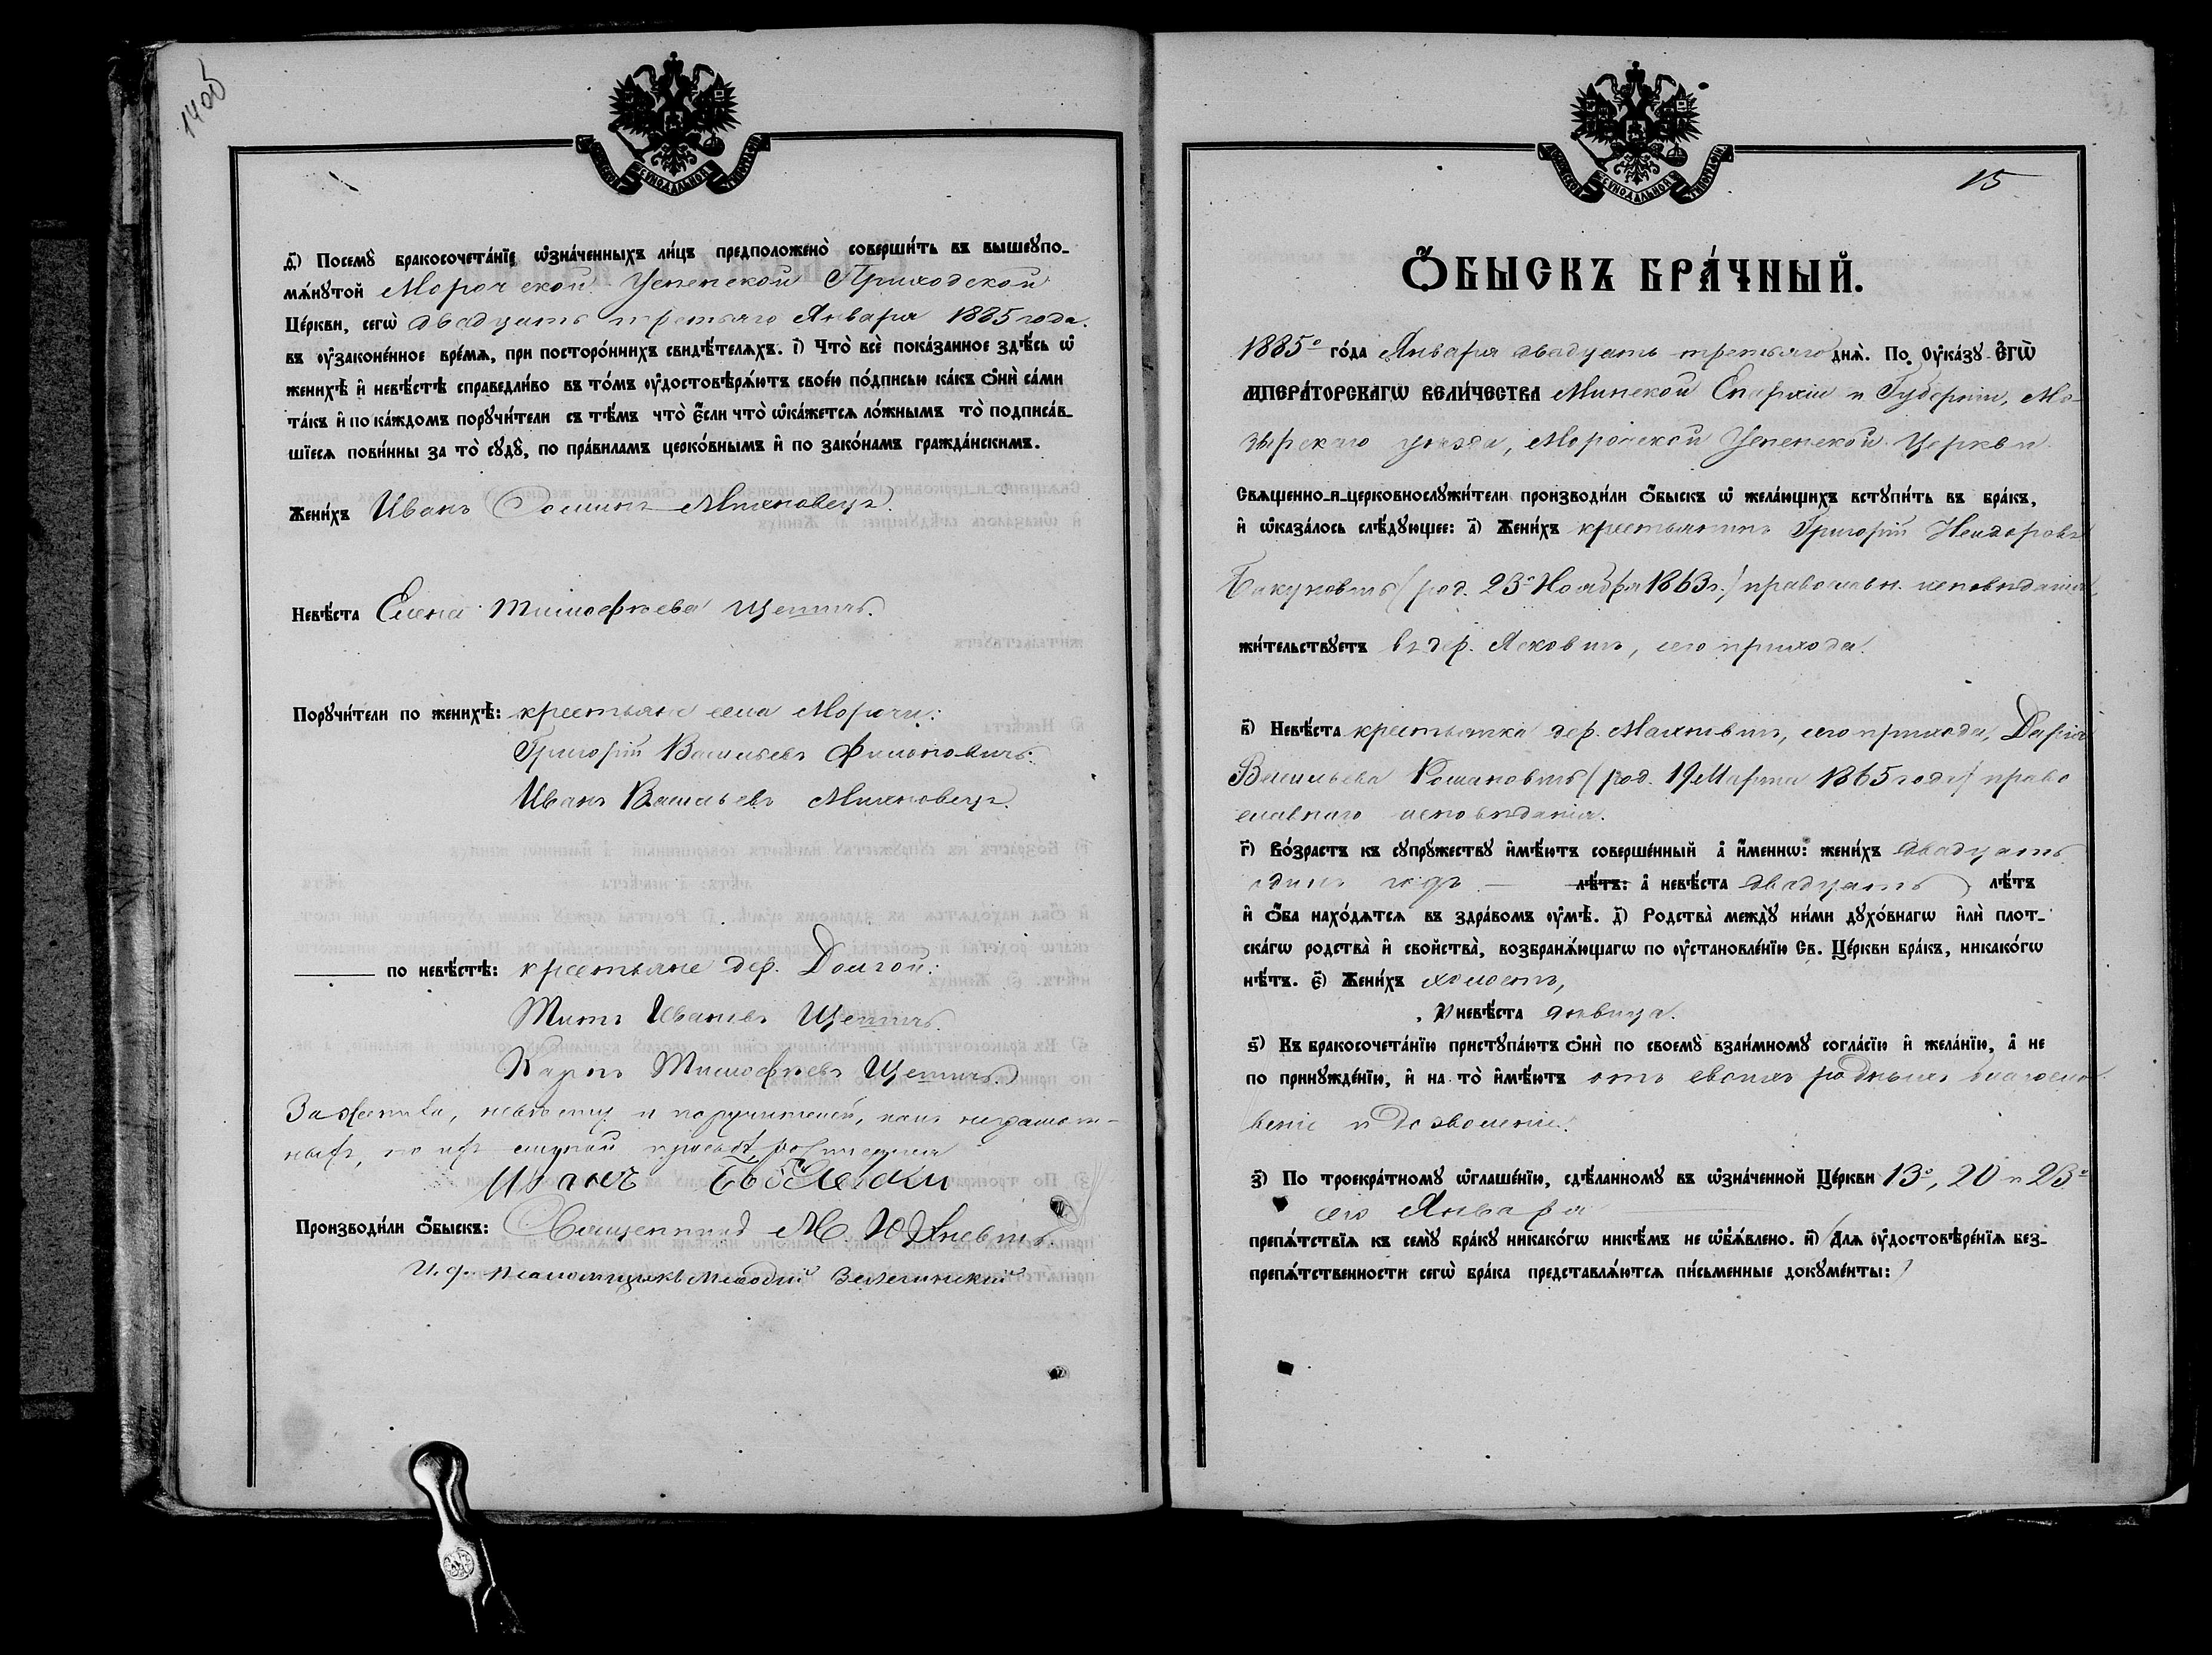 14об
МОСКОВСКОЙ СѴНОДАЛЬНОЙ ТИПОГРАФІИ
д҃) Посемꙋ̀ бракосочета́нїе ѡ҆зна́ченныхъ ли́цъ предположено̀ соверши́ть въ вышеꙋпо-
мѧ́нꙋтой Морочской Успенской Приходской
Це́ркви, сегѡ̀ двадцать третьяго Января 1885 года.
въ ᲂу҆законе́нное вре́мѧ, при посторо́ннихъ свидѣ́телѧхъ. і҃) Что̀ всѐ пока́занное здѣ́сь ѡ҆
женихѣ̀ и҆ невѣ́стѣ справедли́во въ то́мъ ᲂу҆достовѣрѧ́ютъ своє́ю по́дписью ка́къ ѻ҆нѝ са́ми
та́къ и҆ по ка́ждомъ порꙋчи́тели съ тѣ́мъ что̀ є҆́сли что̀ ѡ҆ка́жется ло́жнымъ то̀ подписа́в-
шїеся пови́нны за то̀ сꙋдꙋ̀, по пра́виламъ церко́внымъ и҆ по зако́намъ гражда́нскимъ.
Жени́хъ Иванъ Фоминъ Михновецъ.
Невѣ́ста Елена Тимофѣева Щепить.
Порꙋчи́тели по женихѣ̀: крестьяне села Морочи:
Григорій Васильевъ Филоповичъ.
Иванъ Васильевъ Михновецъ.
по невѣ́стѣ: крестьяне дер. Долгой:
Титъ Ивановъ Щепить.
Карпъ Тимофѣевъ Щепить.
За жениха, невѣсту и поручителей, какъ неграмот-
ныхъ, по ихъ личной просьбѣ росписался
Производи́ли ѻ҆́быскъ: Священникъ М. Юхневичъ.
И. д. псаломщика Меѳодій Зелезинскій
МОСКОВСКОЙ СѴНОДАЛЬНОЙ ТИПОГРАФІИ
15
Ѻ҆́БЫСКЪ БРА́ЧНЫЙ.
1885о го́да Января двадцать третьяго днѧ̀. По ᲂу҆ка́зꙋ Є҆гѡ̀
И҆МПЕРА́ТОРСКАГѠ ВЕЛИ́ЧЕСТВА Минской Епархіи и Губерніи, Мо-
зырскаго уѣзда, Морочской Успенской Церкви
Свѧщенно-и-церковнослꙋжи́тели производи́ли ѻ҆́быскъ ѡ҆ жела́ющихъ встꙋпи́ть въ бра́къ,
и҆ ѡ҆каза́лось слѣ́дꙋющее: а҃) Жени́хъ крестьянинъ Григорій Исидоровъ
Бакуновичъ (род. 23о Ноября 1863 г.) православн. исповѣданія,
жи́тельствꙋетъ въ дер. Ясковичъ, сего прихода.
в҃) Невѣ́ста крестьянка дер. Махновичъ, сего прихода, Дарія
Васильева Романовичъ (род. 19 Марта 1865 года) право
славнаго исповѣданія.
г҃) Во́зрастъ къ сꙋпрꙋ́жествꙋ и҆мѣ́ютъ соверше́нный а҆ и҆́меннѡ: жени́хъ двадцать
одинъ годъ — лѣ́тъ: а҆ невѣ́ста двадцать лѣ́тъ
и҆ ѻ҆́ба нахо́дѧтся въ здра́вомъ ᲂу҆мѣ̀. д҃) Родства̀ междꙋ̀ ни́ми дꙋхо́внагѡ и҆лѝ плот-
ска́гѡ родства̀ и҆ свойства̀, возбранѧ́ющагѡ по ᲂу҆становле́нїю Св. Це́ркви бра́къ, никако́гѡ
нѣ́тъ. є҃) Жени́хъ холостъ,
и невѣ́ста дѣвица.
ѕ҃) Къ бракосочета́нїю пристꙋпа́ютъ ѻ҆нѝ по своемꙋ̀ взаи́мномꙋ согла́сїю и҆ жела́нїю, а҆ не
по принꙋжде́нїю, и҆ на то̀ и҆мѣ́ютъ отъ своихъ родныхъ благосло-
веніе и дозволеніе.
з҃) По троекра́тномꙋ ѡ҆глаше́нїю, сдѣ́ланномꙋ въ ѡ҆зна́ченной Це́ркви 13о, 20 и 23о
сего Января
препѧ́тствїѧ къ семꙋ̀ бра́кꙋ никако́гѡ никѣ́мъ не ѡ҆б̾ѧ́влено. и҃) (Длѧ ᲂу҆достовѣре́нїѧ без-
препѧ́тственности сегѡ̀ бра́ка представлѧ́ются пи́сьменные докꙋме́нты:)